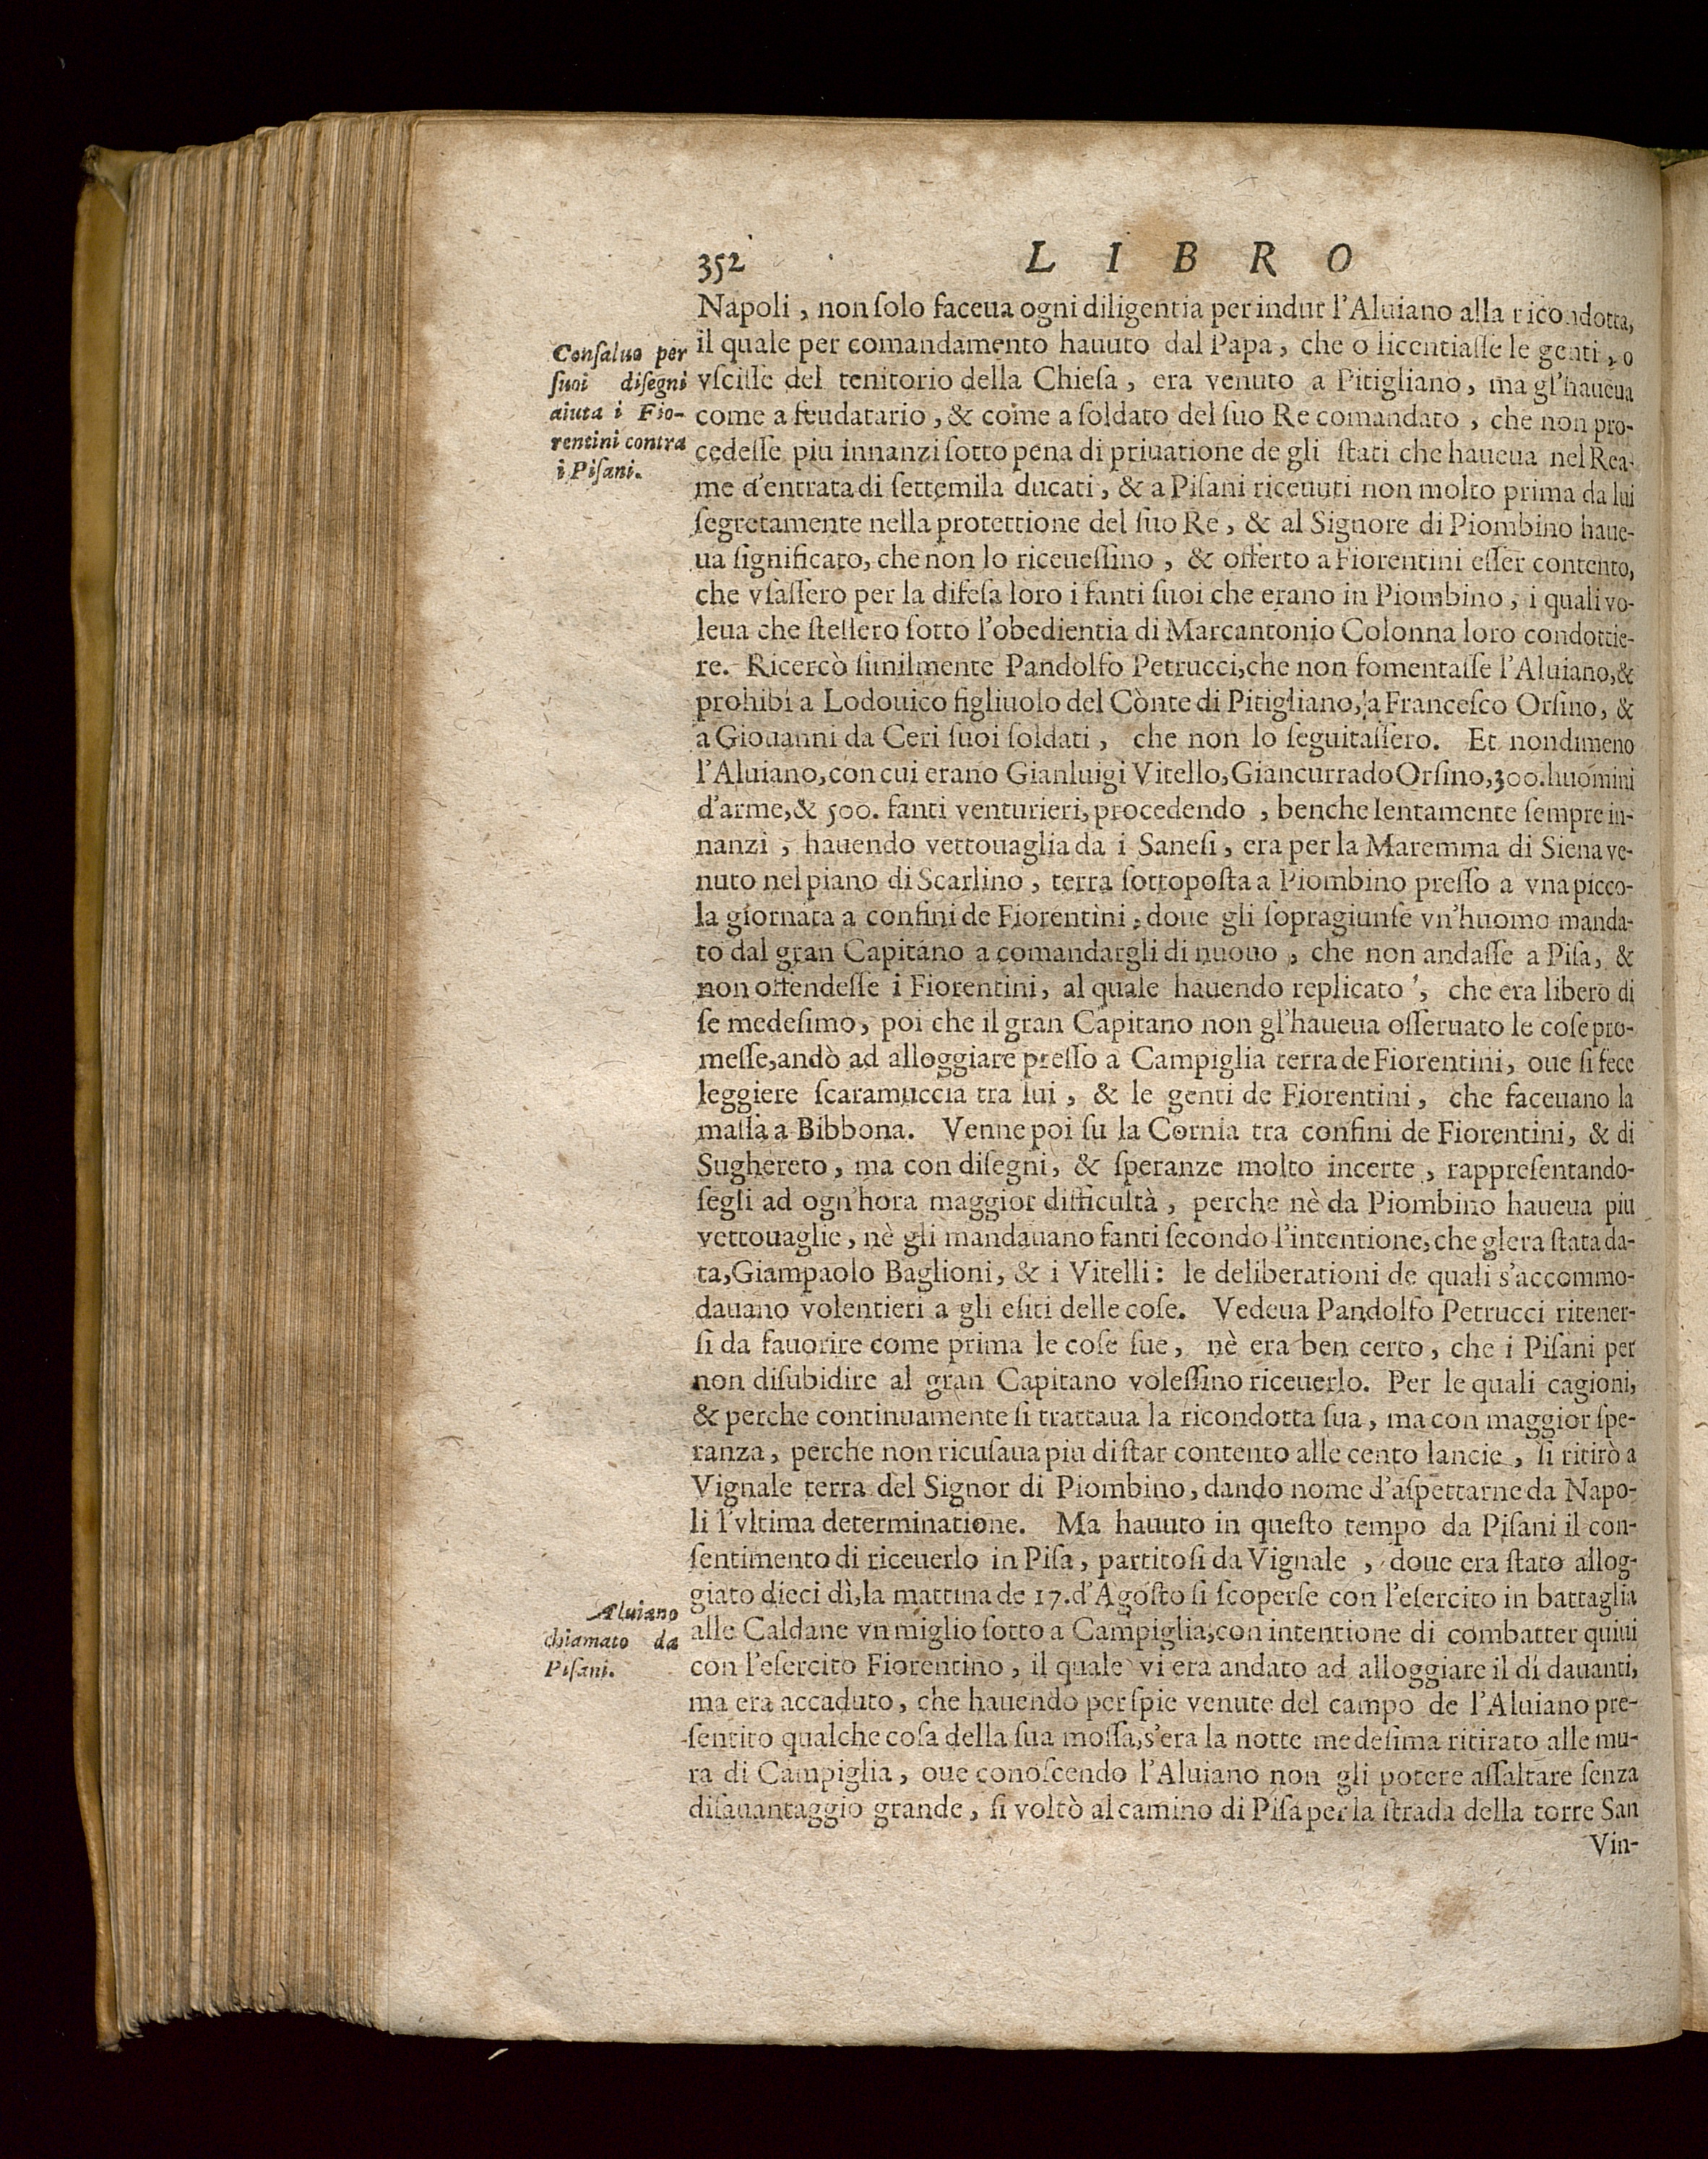 352
LIBRO
Napoli, non ſolo faceua ogni diligentia per indur l'Aluiano alla ricondotta,
il quale per comandamento hauuto dal Papa, che o licentiaſſe le genti, o
vſciſſe del tenitorio della Chieſa, era venuto a Pitigliano, ma gl'haueua
come a feudatario, & come a ſoldato del ſuo Re comandato, che non pro-
cedeſſe piu innanzi ſotto pena di priuatione de gli ſtati che haueua nel Rea-
me d'entrata di ſettemila ducati, & a Piſani riceuuti non molto prima da lui
ſegretamente nella protettione del ſuo Re, & al Signore di Piombino haue-
ua ſignificato, che non lo riceueſſino, & offerto a Fiorentini eſſer contento,
che vſaſſero per la difeſa loro i fanti ſuoi che erano in Piombino, i quali vo-
leua che ſteſſero ſotto l'obedientia di Marcantonio Colonna loro condottie-
re. Ricercò ſimilmente Pandolfo Petrucci, che non fomentaſſe l'Aluiano, &
prohibì a Lodouico figliuolo del Cònte di Pitigliano, a Franceſco Orſino, &
a Giouanni da Ceri ſuoi ſoldati, che non lo ſeguitaſſero. Et nondimeno
l'Aluiano, con cui erano Gianluigi Vitello, Giancurrado Orſino, 300. huomini
d'arme, & 500. fanti venturieri, procedendo, benche lentamente ſempre in-
nanzi, hauendo vettouaglia da i Saneſi, era per la Maremma di Siena ve-
nuto nel piano di Scarlino, terra ſottopoſta a Piombino preſſo a vna picco-
la giornata a confini de Fiorentini, doue gli ſopragiunſe vn'huomo manda-
to dal gran Capitano a comandargli di nuouo, che non andaſſe a Piſa, &
non offendeſſe i Fiorentini, al quale hauendo replicato, che era libero di
ſe medeſimo, poi che il gran Capitano non gl'haueua oſſeruato le coſe pro-
meſſe, andò ad alloggiare preſſo a Campiglia terra de Fiorentini, oue ſi fece
leggiere ſcaramuccia tra lui, & le genti de Fiorentini, che faceuano la
maſſa a Bibbona. Venne poi ſu la Cornia tra confini de Fiorentini, & di
Sughereto, ma con diſegni, & ſperanze molto incerte, rappreſentando-
ſegli ad ogn'hora maggior difficultà, perche nè da Piombino haueua piu
vettouaglie, nè gli mandauano fanti ſecondo l'intentione, che glera ſtata da-
ta, Giampaolo Baglioni, & i Vitelli: le deliberationi de quali s'accommo-
dauano volentieri a gli eſiti delle coſe. Vedeua Pandolfo Petrucci ritener-
ſi da fauorire come prima le coſe ſue, nè era ben certo, che i Piſani per
non diſubidire al gran Capitano voleſſino riceuerlo. Per le quali cagioni,
& perche continuamente ſi trattaua la ricondotta ſua, ma con maggior ſpe-
ranza, perche non ricuſaua piu di ſtar contento alle cento lancie, ſi ritirò a
Vignale terra del Signor di Piombino, dando nome d'aſpettarne da Napo-
li l'vltima determinatione. Ma hauuto in queſto tempo da Piſani il con-
ſentimento di riceuerlo in Piſa, partitoſi da Vignale, doue era ſtato allog-
giato dieci dì, la mattina de 17. d'Agoſto ſi ſcoperſe con l'eſercito in battaglia
alle Caldane vn miglio ſotto a Campiglia, con intentione di combatter quiui
con l'eſercito Fiorentino, il quale vi era andato ad alloggiare il dì dauanti,
ma era accaduto, che hauendo per ſpie venute del campo de l'Aluiano pre-
ſentito qualche coſa della ſua moſſa, s'era la notte medeſima ritirato alle mu-
ra di Campiglia, oue conoſcendo l'Aluiano non gli potere aſſaltare ſenza
diſauantaggio grande, ſi voltò al camino di Piſa per la ſtrada della torre San
Vin-
Conſaluo per
ſuoi diſegni
aiuta i Fio-
rentini contra
i Piſani.
Aluiano
chiamato da
Piſani.